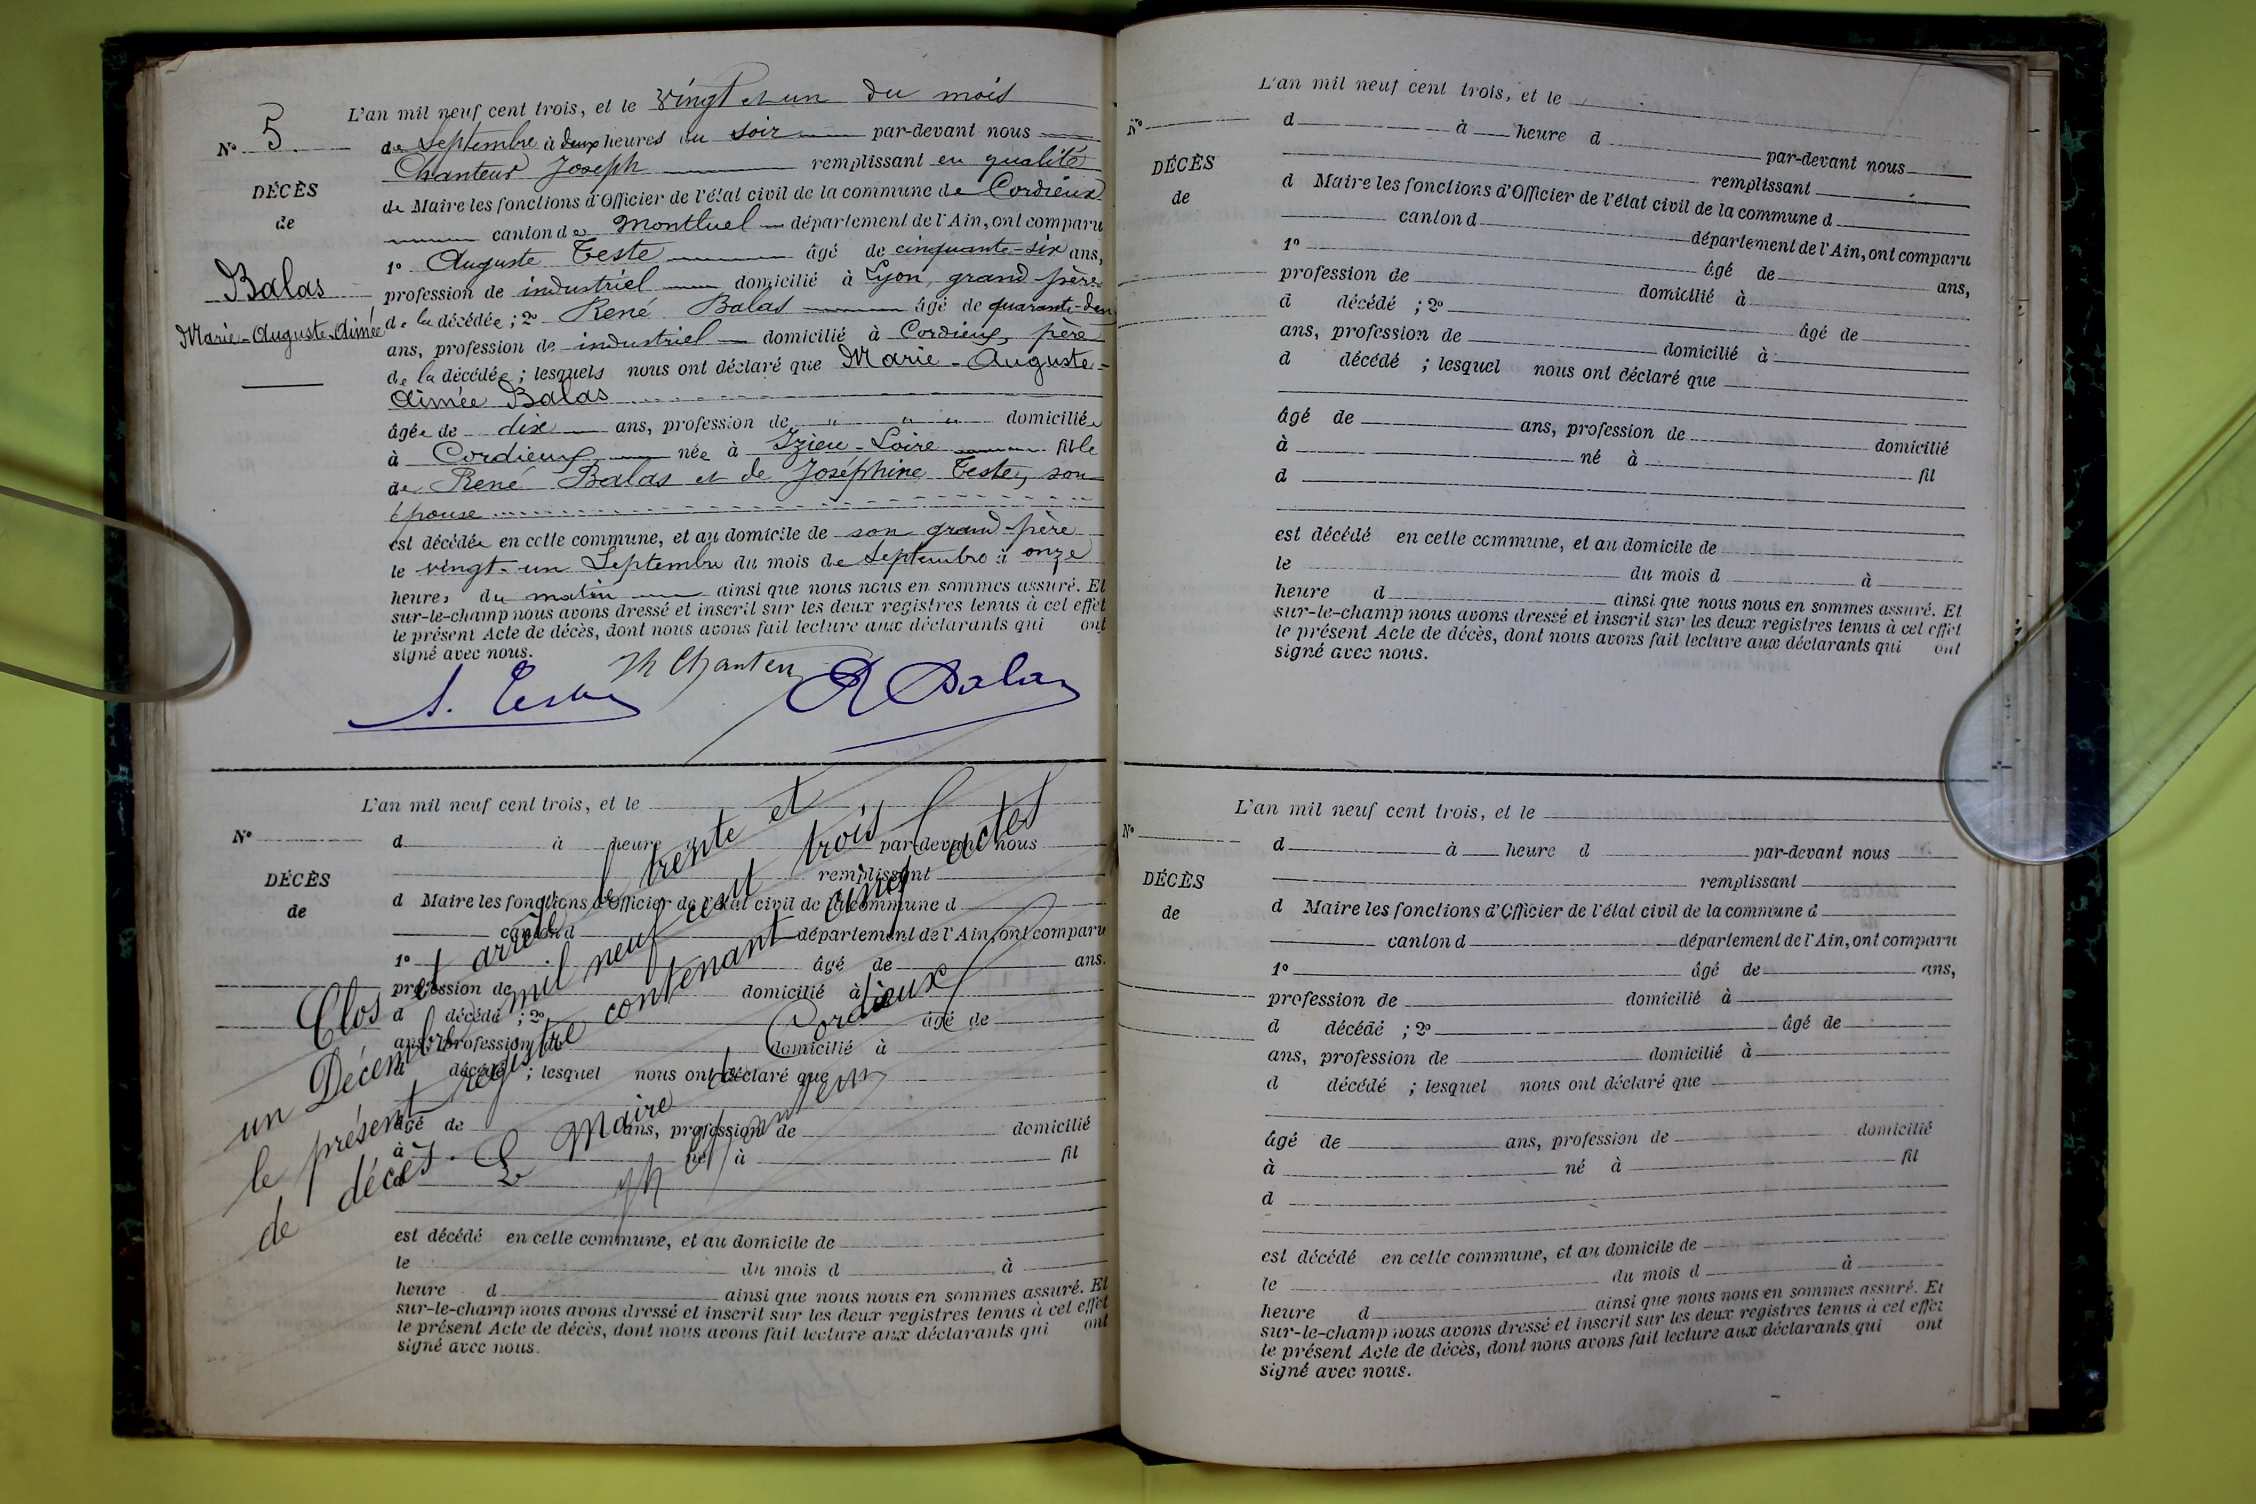 L'an mil neuf cent trois, et le vingt et un du mois
N° 5
de septembre à deux heures du soir par-devant nous
Chanteur Joseph remplissant en qualité
DÉCÈS
de Maire les fonctions d'Officier de l'état civil de la commune de Cordieux
de
canton de Montluel département de l'Ain, ont comparu
1° Auguste Teste âgé de cinquante-six ans,
Balas
profession de industriel domicilié à Lyon, grand père
Marie-Auguste-Aimée
de la décédée ; 2° René Balas âgé de quarante-deux
ans, profession de industriel domicilié à Cordieux, père
de la décédée ; lesquels nous ont déclaré que Marie-Auguste-
Aimée Balas
âgée de dix ans, profession de " " " domiciliée
à Cordieux née à Izieu-Loire fille
de René Balas et de Joséphine Teste, son
épouse
est décédée en cette commune, et au domicile de son grand-père
le vingt-un Septembre du mois de Septembre à onze
heures du matin ainsi que nous nous en sommes assuré. Et
sur-le-champ nous avons dressé et inscrit sur les deux registres tenus à cet effet
le présent Acte de décès, dont nous avons fait lecture aux déclarants qui ont
signé avec nous.
Jh Chanteur
A. Teste R Balas
L'an mil neuf cent trois, et le
N°
d à heure d par-devant nous
remplissant
DÉCÈS
d Maire les fonctions d'Officier de l'état civil de la commune d
de
canton d département de l'Ain, ont comparu
1° âgé de ans.
profession de domicilié à
d décédé ; 2° âgé de
ans, profession de domicilié à
d décédé ; lesquel nous ont déclaré que
âgé de ans, profession de domicilié
à né à fil
d
est décédé en cette commune, et au domicile de
le du mois d à
heure d ainsi que nous nous en sommes assuré. Et
sur-le-champ nous avons dressé et inscrit sur les deux registres tenus à cet effet
le présent Acte de décès, dont nous avons fait lecture aux déclarants qui ont
signé avec nous.
Clos et arrêté le trente et
un Décembre mil neuf cent trois
le présent registre contenant cinq actes
de décès. Le Maire de Cordieux
Jh Chanteur
L'an mil neuf cent trois, et le
N°
d à heure d par-devant nous
remplissant
DÉCÈS
d Maire les fonctions d'Officier de l'état civil de la commune d
de
canton d département de l'Ain, ont comparu
1° âgé de ans,
profession de domicilié à
d décédé ; 2° âgé de
ans, profession de domicilié à
d décédé ; lesquel nous ont déclaré que
âgé de ans, profession de domicilié
à né à fil
d
est décédé en cette commune, et au domicile de
le du mois d à
heure d ainsi que nous nous en sommes assuré. Et
sur-le-champ nous avons dressé et inscrit sur les deux registres tenus à cet effet
le présent Acte de décès, dont nous avons fait lecture aux déclarants qui ont
signé avec nous.
L'an mil neuf cent trois, et le
N°
d à heure d par-devant nous
remplissant
DÉCÈS
d Maire les fonctions d'Officier de l'état civil de la commune d
de
canton d département de l'Ain, ont comparu
1° âgé de ans,
profession de domicilié à
d décédé ; 2° âgé de
ans, profession de domicilié à
d décédé ; lesquel nous ont déclaré que
âgé de ans, profession de domicilié
à né à fil
d
est décédé en cette commune, et au domicile de
le du mois d à
heure d ainsi que nous nous en sommes assuré. Et
sur-le-champ nous avons dressé et inscrit sur les deux registres tenus à cet effet
le présent Acte de décès, dont nous avons fait lecture aux déclarants qui ont
signé avec nous.